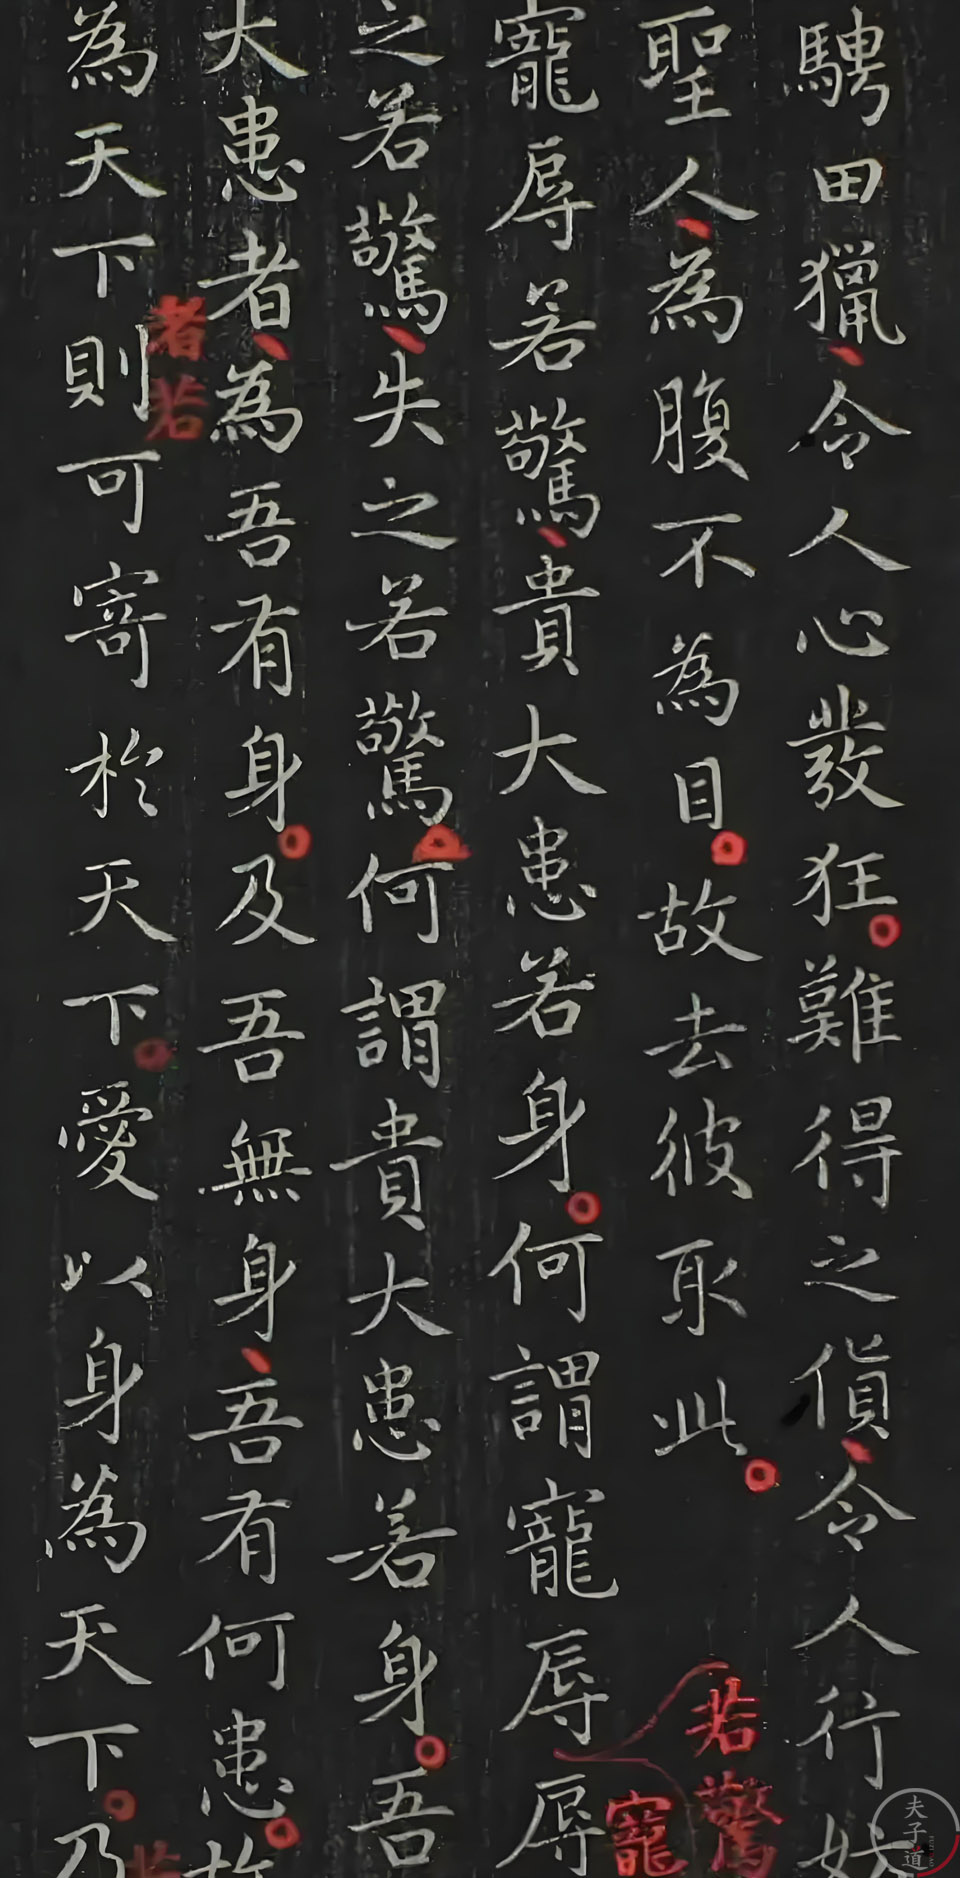 騁田獵令人心發狂難得之貨令人行妨
聖人為腹不為目故去彼取此
若驚
寵
寵辱若驚貴大患若身何謂寵辱辱
之若驚失之若驚何謂貴大患若身吾
大患者為吾有身及吾無身吾有何患故
者若
為天下則可寄於天下愛以身為天下乃
若
夫子道